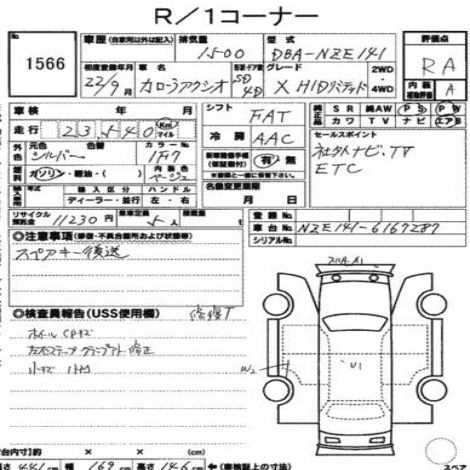 R／1コーナー
No. 1566
車歴（自家用以外は記入） 排気量 1500 型式 DBA-NZE141 評価点 RA
初度登録年月 22/9月 カローラアクシオ 形状・ドア数 SD 4D グレード X HIDリミテッド 2WD・4WD 内装 A
車検 年 月 シフト FAT 純正品 SR 純AW PS PW
走行 23,540 Km マイル カワ TV ナビ エアB
外色 元色 シルバー 色替 カラーNo. 1F7 冷房 AAC セールスポイント
燃料 ガソリン・軽油・( ) 内装色 ベージュ 有 無 社外ナビ、TV
輸入区分 ハンドル 名義変更期限 ETC
ディーラー・並行 左・右 月 日
リサイクル預託金 11230円 乗車定員 5人 積載量 t 登録No.
車台No. NZE141-6167287
シリアルNo.
◎注意事項（修復・不具合箇所および状態等）
スペアキー後送
◎検査員報告（USS使用欄） 修復T
ホイルCPキズ
左右ステップ 修正
小キズ
W2 U1
車台内寸） × × (cm)
長さ 441 cm 幅 169 cm 高さ 146 cm ←（車検証上の寸法）